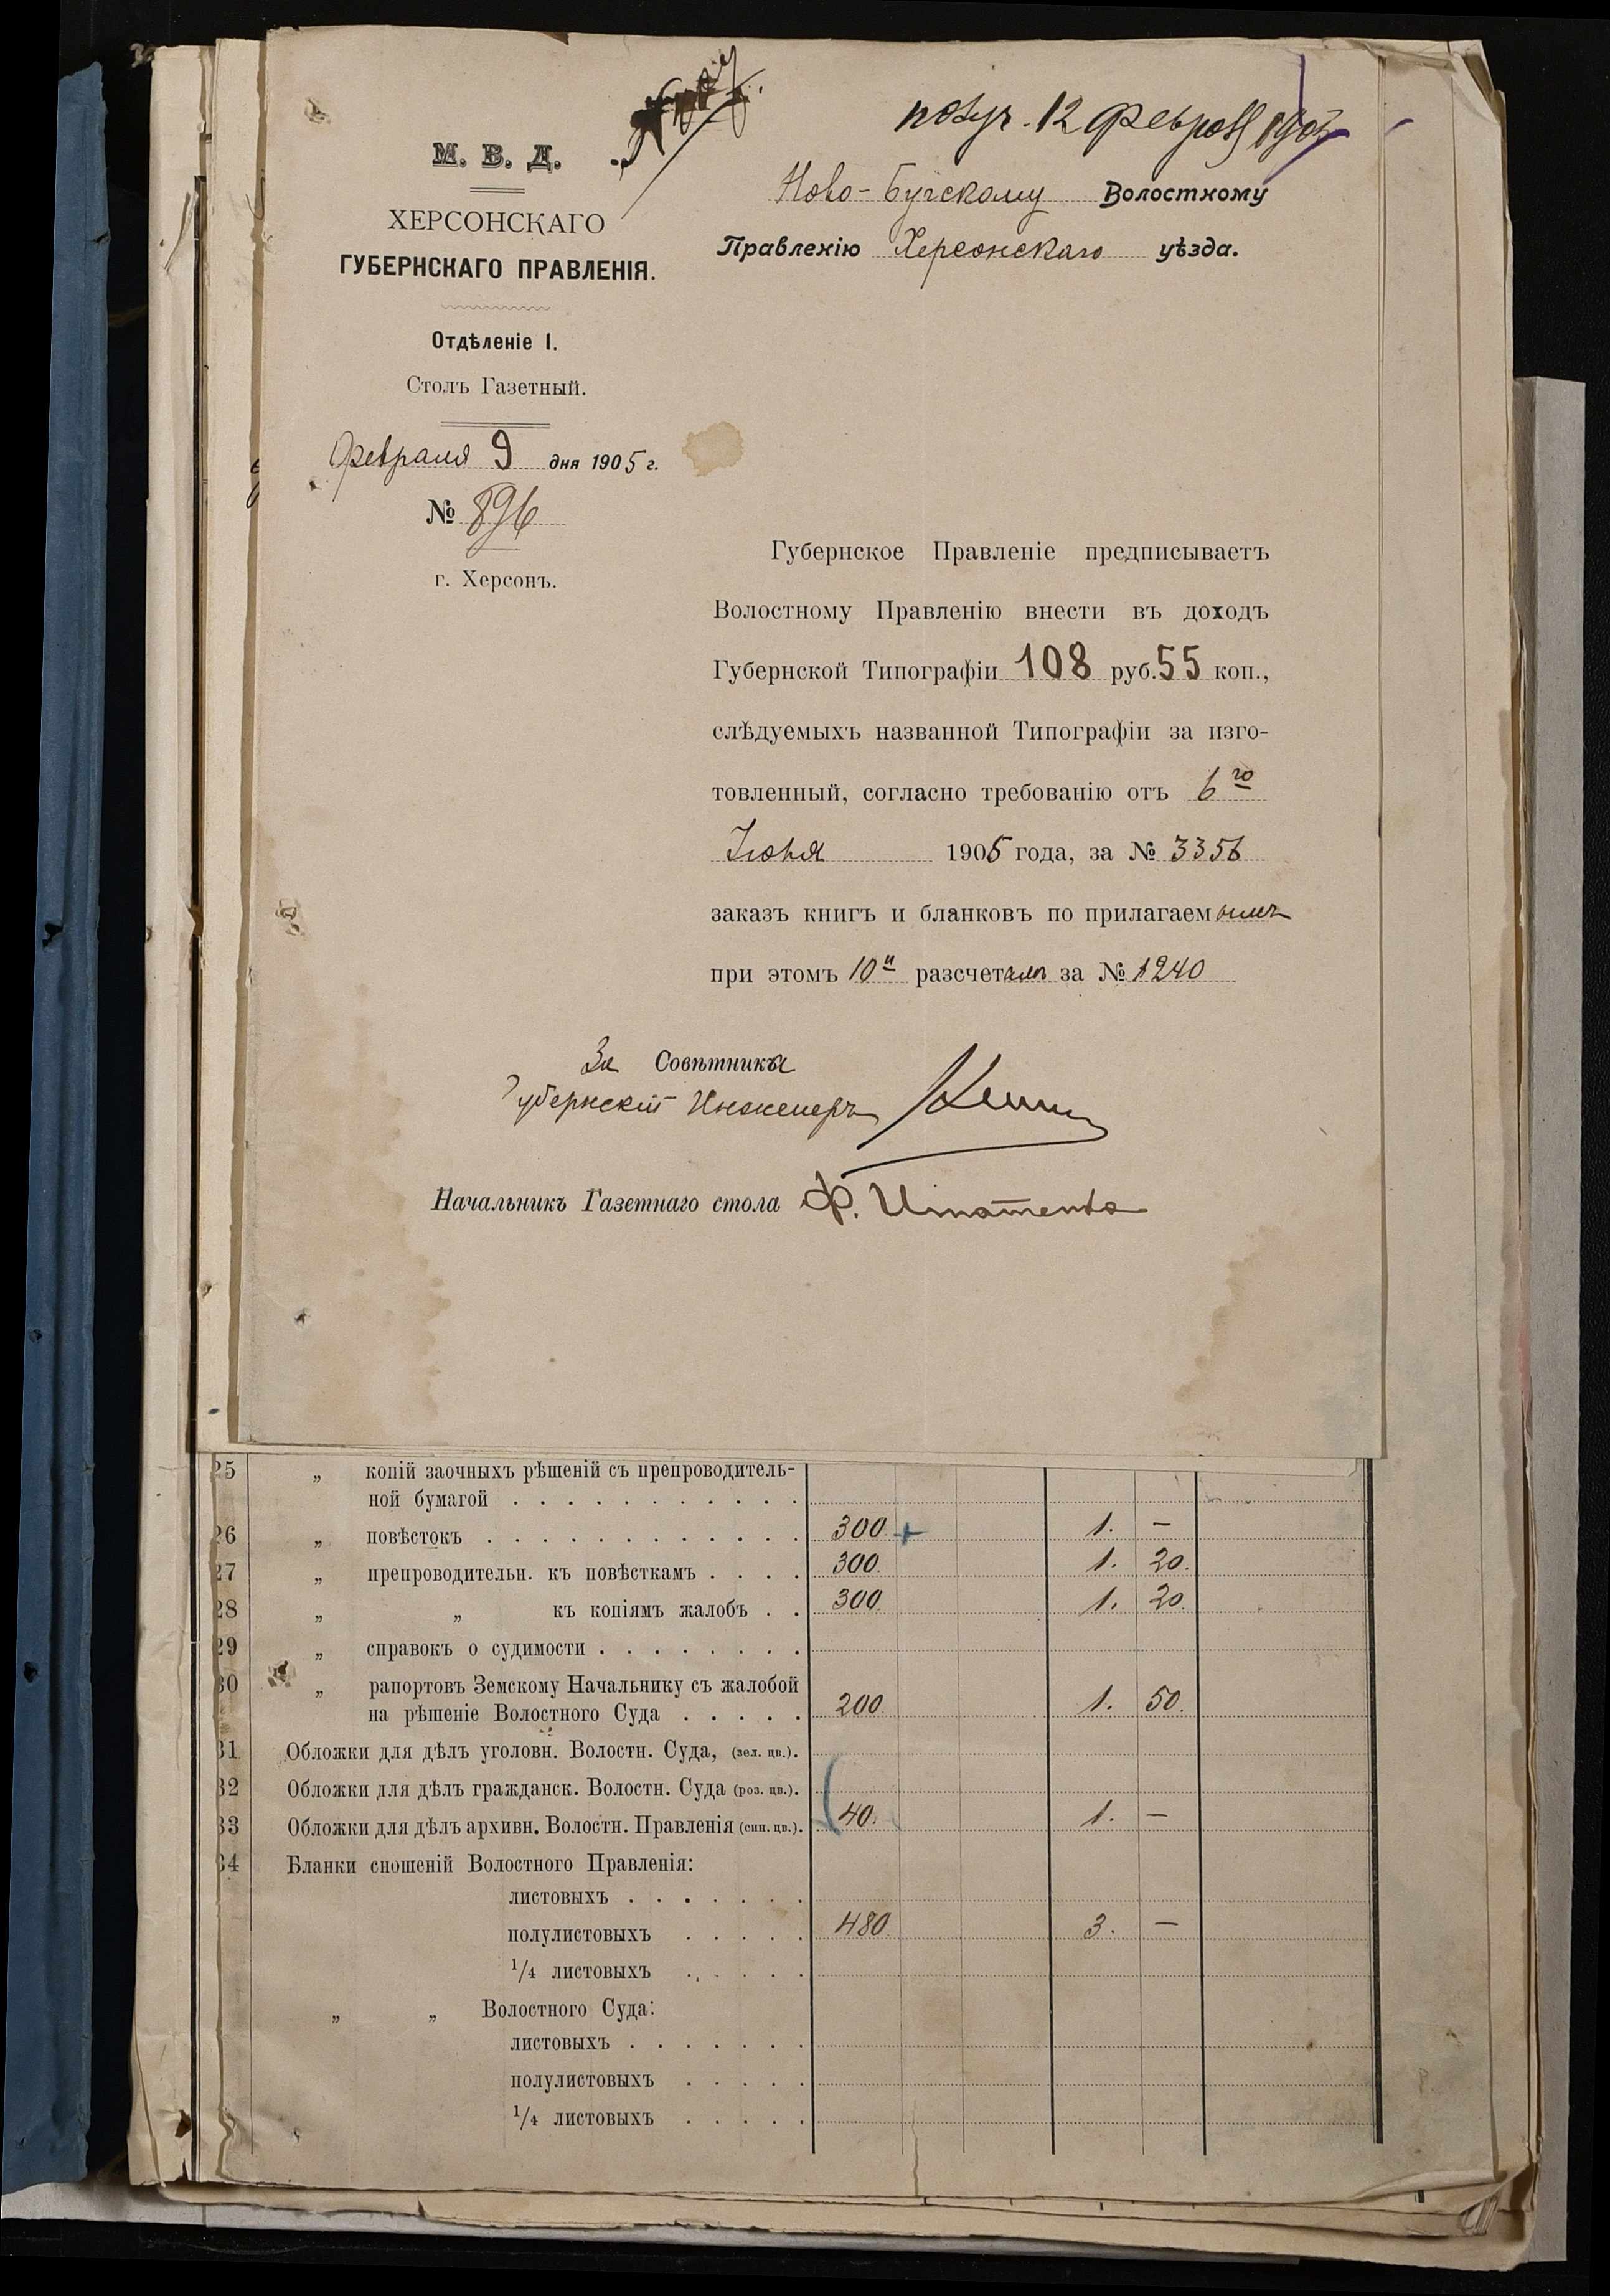 получ. 12 февраля 1905
М. В. Д.
ХЕРСОНСКАГО
ГУБЕРНСКАГО ПРАВЛЕНІЯ.
Отдѣленіе I.
Столъ Газетный.
Февраля 9 дня 1905 г.
№ 896
г. Херсонъ.
Ново-Бугскому Волостному
Правленію Херсонскаго уѣзда.
Губернское Правленіе предписываетъ
Волостному Правленію внести въ доходъ
Губернской Типографіи 108 руб. 55 коп.,
слѣдуемыхъ названной Типографіи за изго-
товленный, согласно требованію отъ 6го
1905 года, за № 3356
заказъ книгъ и бланковъ по прилагаемымъ
при этомъ 10и разсчетамъ за № 1240
За Совѣтника
Губернскій Инженеръ
Начальникъ Газетнаго стола Ф.
25 „ копій заочныхъ рѣшеній съ препроводитель-
ной бумагой
26 „ повѣстокъ 300 + 1. —
27 „ препроводительн. къ повѣсткамъ 300. 1. 20.
28 „ „ къ копіямъ жалобъ 300. 1. 20.
29 „ справокъ о судимости
30 „ рапортовъ Земскому Начальнику съ жалобой
на рѣшеніе Волостного Суда 200. 1. 50.
31 Обложки для дѣлъ уголовн. Волостн. Суда, (зел. цв.).
32 Обложки для дѣлъ гражданск. Волостн. Суда (роз. цв.).
33 Обложки для дѣлъ архивн. Волостн. Правленія (син. цв.). 40. 1. —
34 Бланки сношеній Волостного Правленія:
листовыхъ
полулистовыхъ 480. 3. —
1/4 листовыхъ
„ „ Волостного Суда:
листовыхъ
полулистовыхъ
1/4 листовыхъ